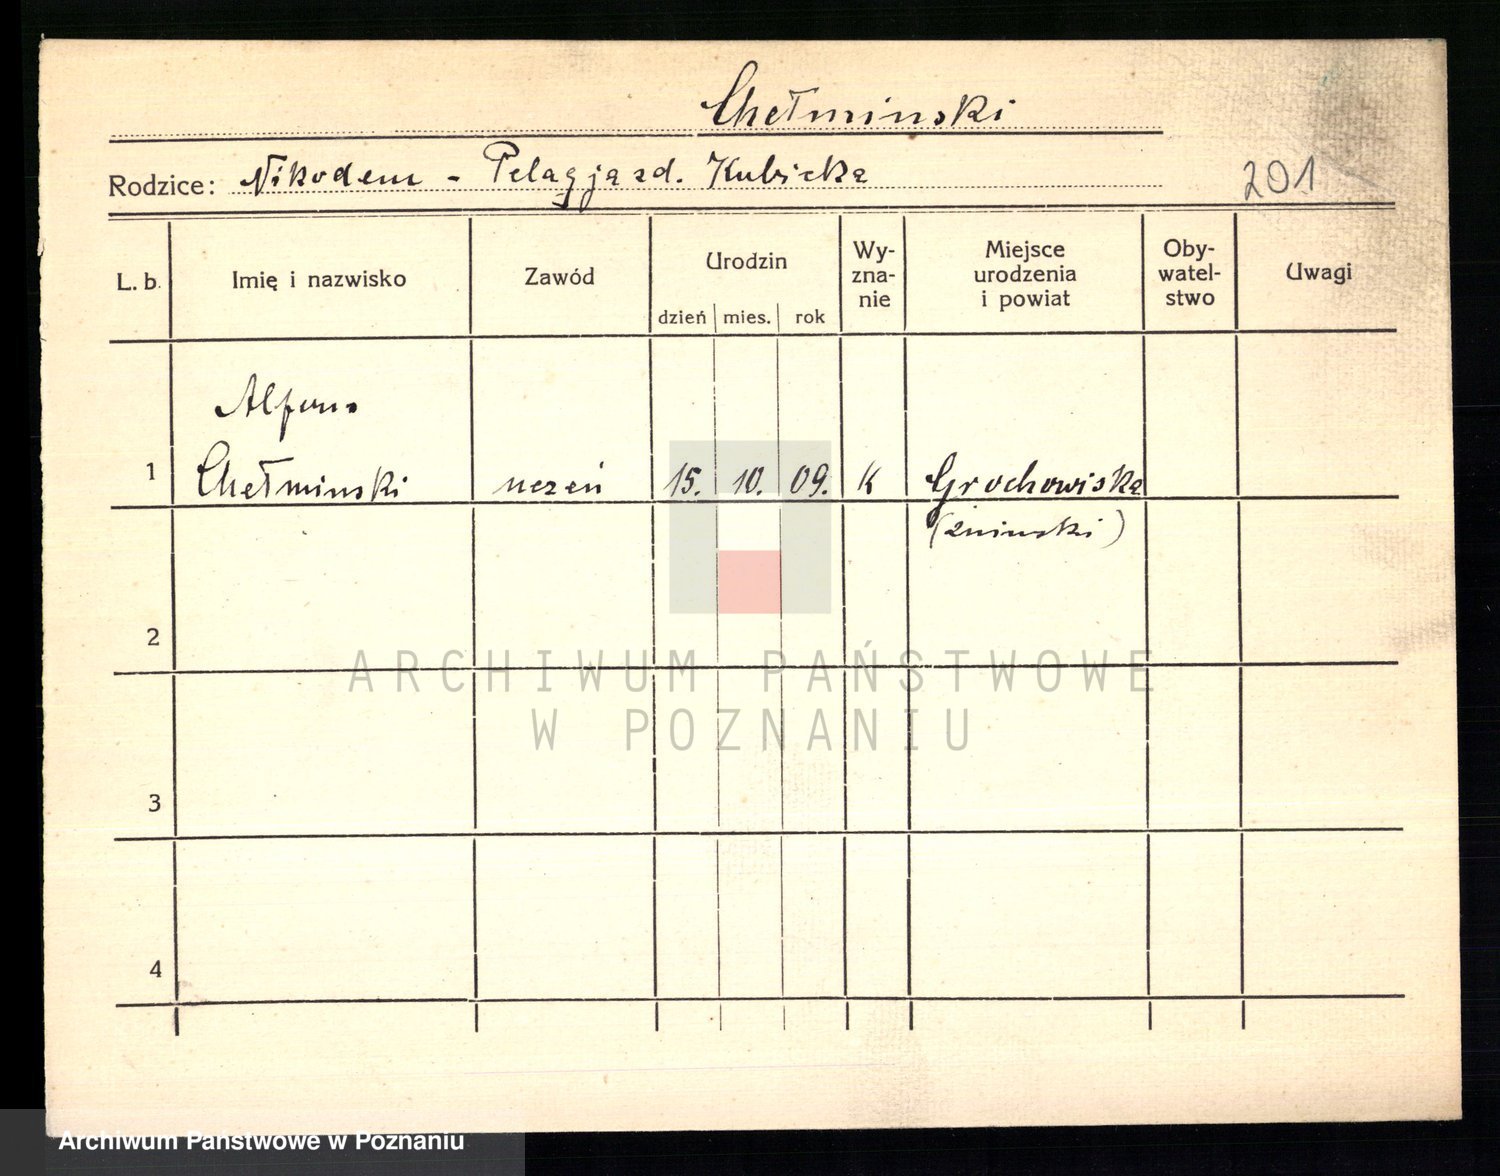 Chełminski
Rodzice: Nikodem - Pelagja zd. Kubicka
201
L. b. Imię i nazwisko Zawód Urodzin dzień mies. rok Wy-zna-nie Miejsce urodzenia i powiat Oby-watel-stwo Uwagi
Alfons
1 Chełminski uczeń 15. 10. 09. K Grochowiska
(żninski)
2
ARCHIWUM PAŃSTWOWE
W POZNANIU
3
4
Archiwum Państwowe w Poznaniu